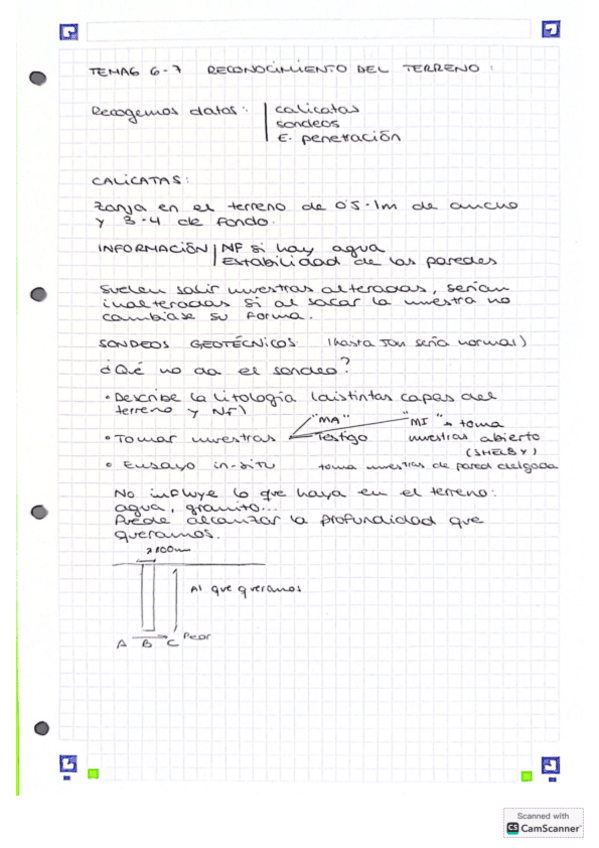 TEMAS 6-7 RECONOCIMIENTO DEL TERRENO:
Recogemos datos: calicatas
sondeos
E. penetración
CALICATAS:
Zanja en el terreno de 0'5-1m de ancho
y 3-4 de fondo.
INFORMACIÓN NF si hay agua
Estabilidad de las paredes
Suelen salir muestras alteradas, serian
inalteradas si al sacar la muestra no
cambiase su forma.
SONDEOS GEOTÉCNICOS (hasta sería normal)
¿Qué no da el sondeo?
• Describe la litología (distintas capas del
terreno y NF)
"MA" "MI" → toma
• Tomar muestras Testigo muestras abierto
(SHELBY)
• Ensayo in-situ toma muestras de pared delgada
No influye lo que haya en el terreno:
agua, granito...
Puede alcanzar la profundidad que
queramos.
100mm
Al que queramos
A B C Peor
Scanned with
CS CamScanner